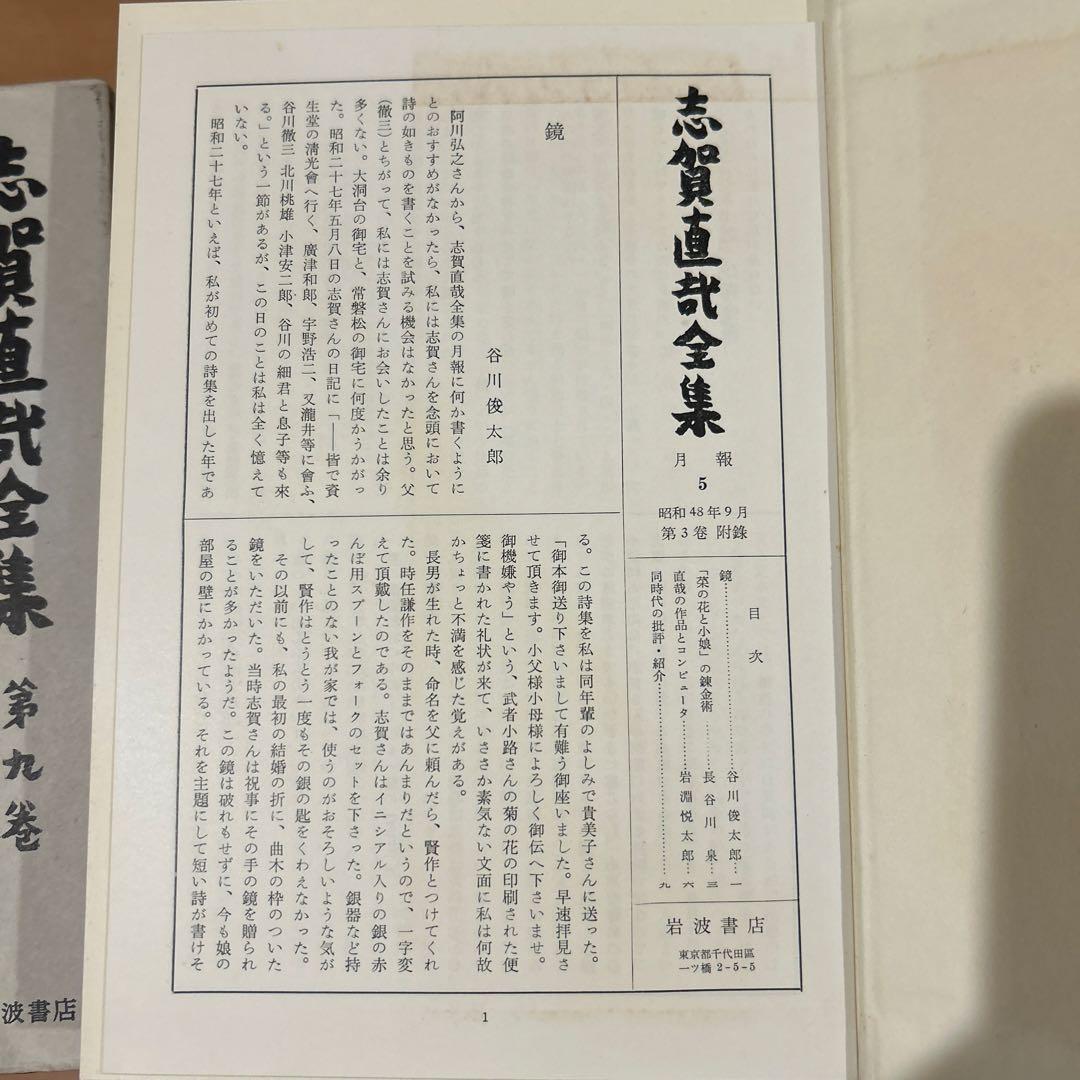 志賀直哉全集
月報
5
昭和48年9月
第3巻 附錄
目次
鏡……谷川俊太郎…一
「菜の花と小娘」の錬金術……長谷川泉…三
直哉の作品とコンピュータ……岩淵悦太郎…六
同時代の批評・紹介……九
岩波書店
東京都千代田區
一ツ橋2-5-5
鏡
谷川俊太郎
阿川弘之さんから、志賀直哉全集の月報に何か書くように
とのおすすめがなかったら、私には志賀さんを念頭において
詩の如きものを書くことを試みる機会はなかったと思う。父
(徹三)とちがって、私には志賀さんにお会いしたことは余り
多くない。大洞台の御宅と、常磐松の御宅に何度かうかがっ
た。昭和二十七年五月八日の志賀さんの日記に「——皆で資
生堂の清光會へ行く、廣津和郎、宇野浩二、又瀧井等に會ふ、
谷川徹三 北川桃雄 小津安二郎、谷川の細君と息子等も來
る。」という一節があるが、この日のことは私は全く憶えて
いない。
昭和二十七年といえば、私が初めての詩集を出した年であ
る。この詩集を私は同年輩のよしみで貴美子さんに送った。
「御本御送り下さいまして有難う御座いました。早速拝見さ
せて頂きます。小父様小母様によろしく御伝へ下さいませ。
御機嫌やう」という、武者小路さんの菊の花の印刷された便
箋に書かれた礼状が来て、いささか素気ない文面に私は何故
かちょっと不満を感じた覚えがある。
長男が生れた時、命名を父に頼んだら、賢作とつけてくれ
た。時任謙作をそのままではあんまりだというので、一字変
えて頂戴したのである。志賀さんはイニシアル入りの銀の赤
んぼ用スプーンとフォークのセットを下さった。銀器など持
ったことのない我が家では、使うのがおそろしいような気が
して、賢作はとうとう一度もその銀の匙をくわえなかった。
その以前にも、私の最初の結婚の折に、曲木の枠のついた
鏡をいただいた。当時志賀さんは祝事にその手の鏡を贈られ
ることが多かったようだ。この鏡は破れもせずに、今も娘の
部屋の壁にかかっている。それを主題にして短い詩が書けそ
1
志賀直哉全集 第九巻
波書店